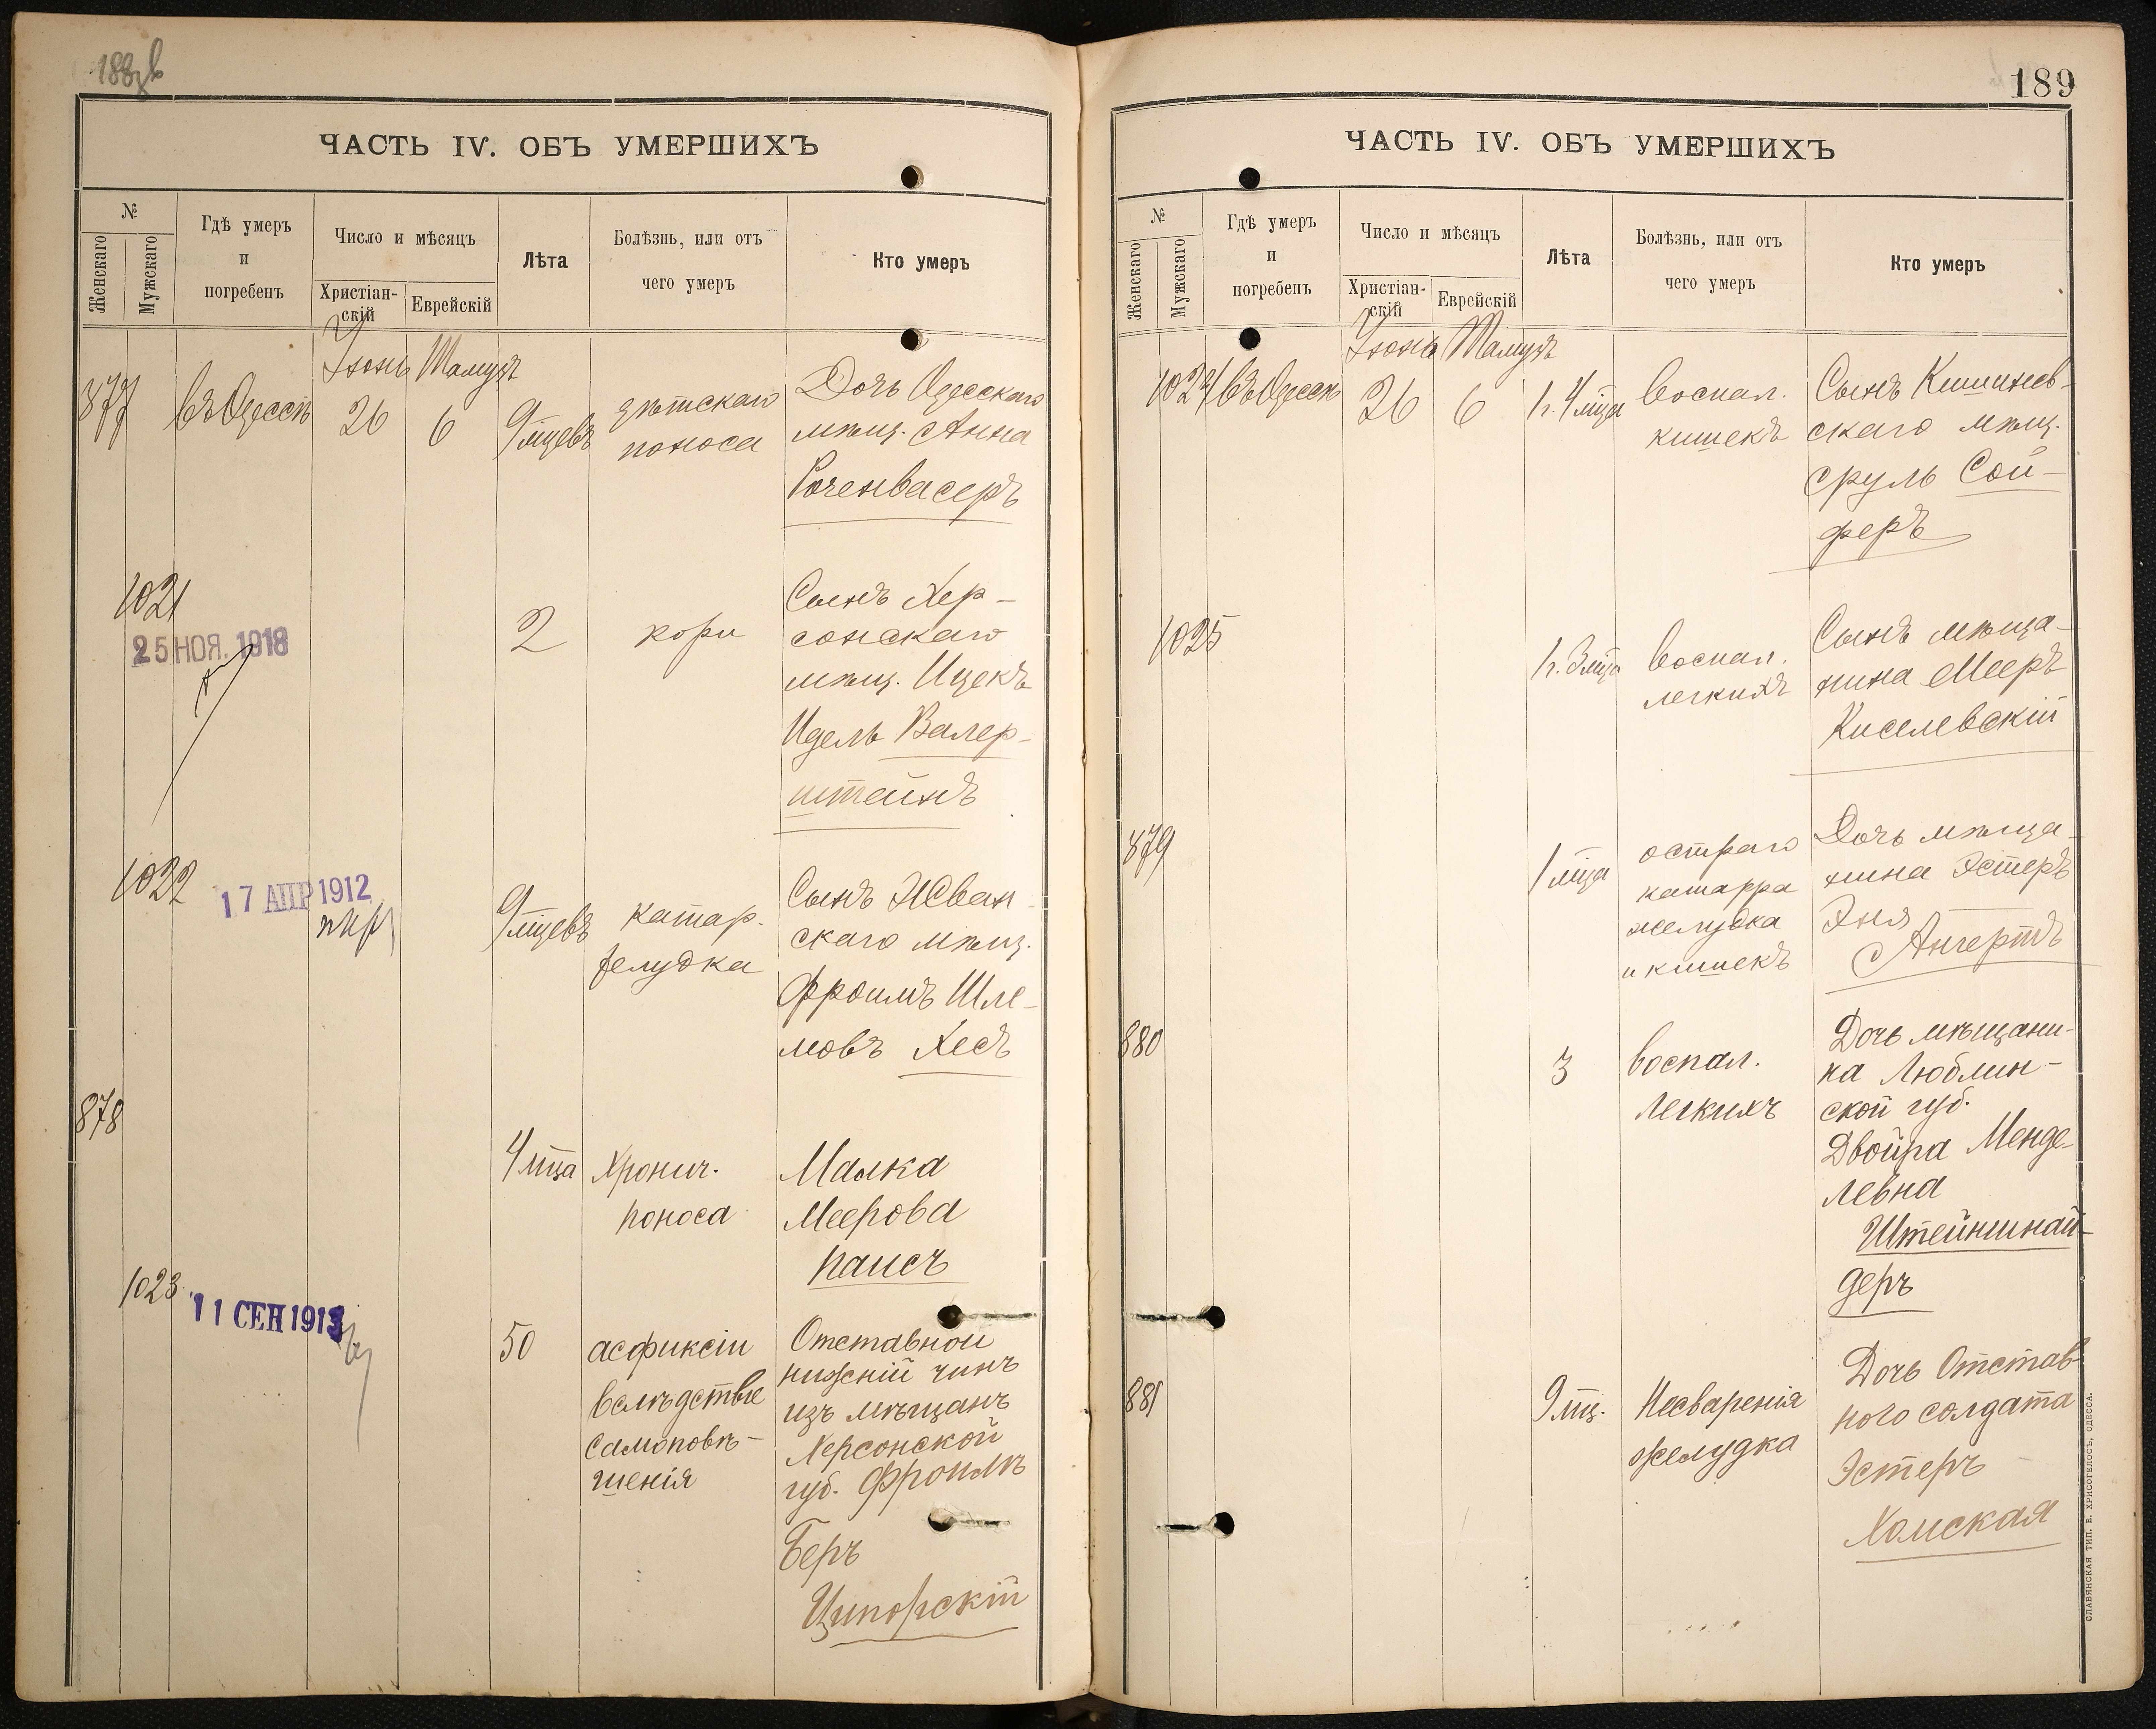 ЧАСТЬ IV. ОБЪ УМЕРШИХЪ
№
Женскаго
Мужскаго
Гдѣ умеръ
и
погребенъ
Число и мѣсяцъ
Христіан-
скій
Еврейскій
Лѣта
Болѣзнь, или отъ
чего умеръ
Кто умеръ
Іюнь Тамузъ
877 въ Одессѣ 26 6 9 мцевъ
дѣтскаго
поноса
Дочь Одесскаго
мѣщ. Анна
Роченвасеръ
1021
25 НОЯ. 1918
2
кори
Сынъ Хер-
сонскаго
мѣщ. Ицекъ
Идель Валер-
штейнъ
1022
17 АПР 1912
9 мцевъ
катар.
желудка
Сынъ Жван-
скаго мѣщ.
Фроимъ Шле-
мовъ Хесъ
878
4 мца
Хронич.
поноса
Малка
Меерова
Паисъ
1023
11 СЕН 1913
50
асфиксіи
вслѣдствіе
самоповѣ-
шенія
Отставной
нижній чинъ
изъ мѣщанъ
Херсонской
губ. Фроимъ
Беръ
Ципорскій
189
ЧАСТЬ IV. ОБЪ УМЕРШИХЪ
№
Женскаго
Мужскаго
Гдѣ умеръ
и
погребенъ
Число и мѣсяцъ
Христіан-
скій
Еврейскій
Лѣта
Болѣзнь, или отъ
чего умеръ
Кто умеръ
Іюнь Тамузъ
1024 въ Одессѣ 26 6 1 г. 4 мца
воспал.
кишекъ
Сынъ Кишинев-
скаго мѣщ.
Сруль Сой-
феръ
1025
1 г. 3 мца
воспал.
легкихъ
Сынъ мѣща-
нина Мееръ
Киселевскій
879
1 мца
остраго
катарра
желудка
и кишекъ
Дочь мѣща-
нина Эстеръ
Эня
Ангертъ
880
3
воспал.
легкихъ
Дочь мѣщани-
на Люблин-
ской губ.
Двойра Менде-
левна
Штейншнай-
деръ
881
9 мц.
Несваренія
желудка
Дочь Отстав-
ного солдата
Эстеръ
Хомская
СЛАВЯНСКАЯ ТИП. Е. ХРИСОГЕЛОСЪ, ОДЕССА.